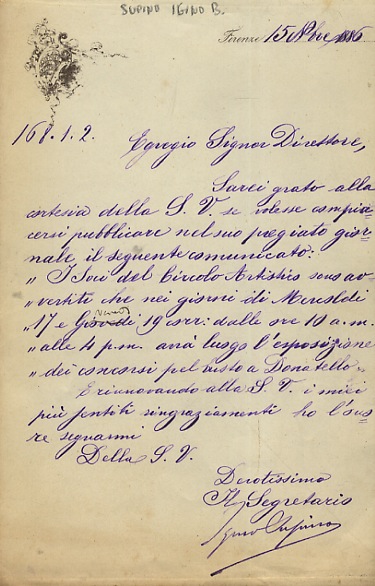 SUPINO IGINO B.
Firenze 15 Nbre 1886
168.1.2.
Egregio Signor Direttore,
Sarei grato alla
cortesia della S. V. se volesse compia
cersi pubblicare nel suo pregiato gior
nale, il seguente comunicato:
" I Soci del Circolo Artistico sono av
" vertiti che nei giorni di Mercoldi
Venerdi
" 17 e Giovedi 19 corr: dalle ore 10 a.m.
" alle 4 p.m. avrà luogo l'esposizione
" dei concorsi pel busto a Donatello "
E rinnovando alla S. V. i miei
più sentiti ringraziamenti ho l'ono
re segnarmi
Della S. V.
Devotissimo
Il Segretario
Igino Supino